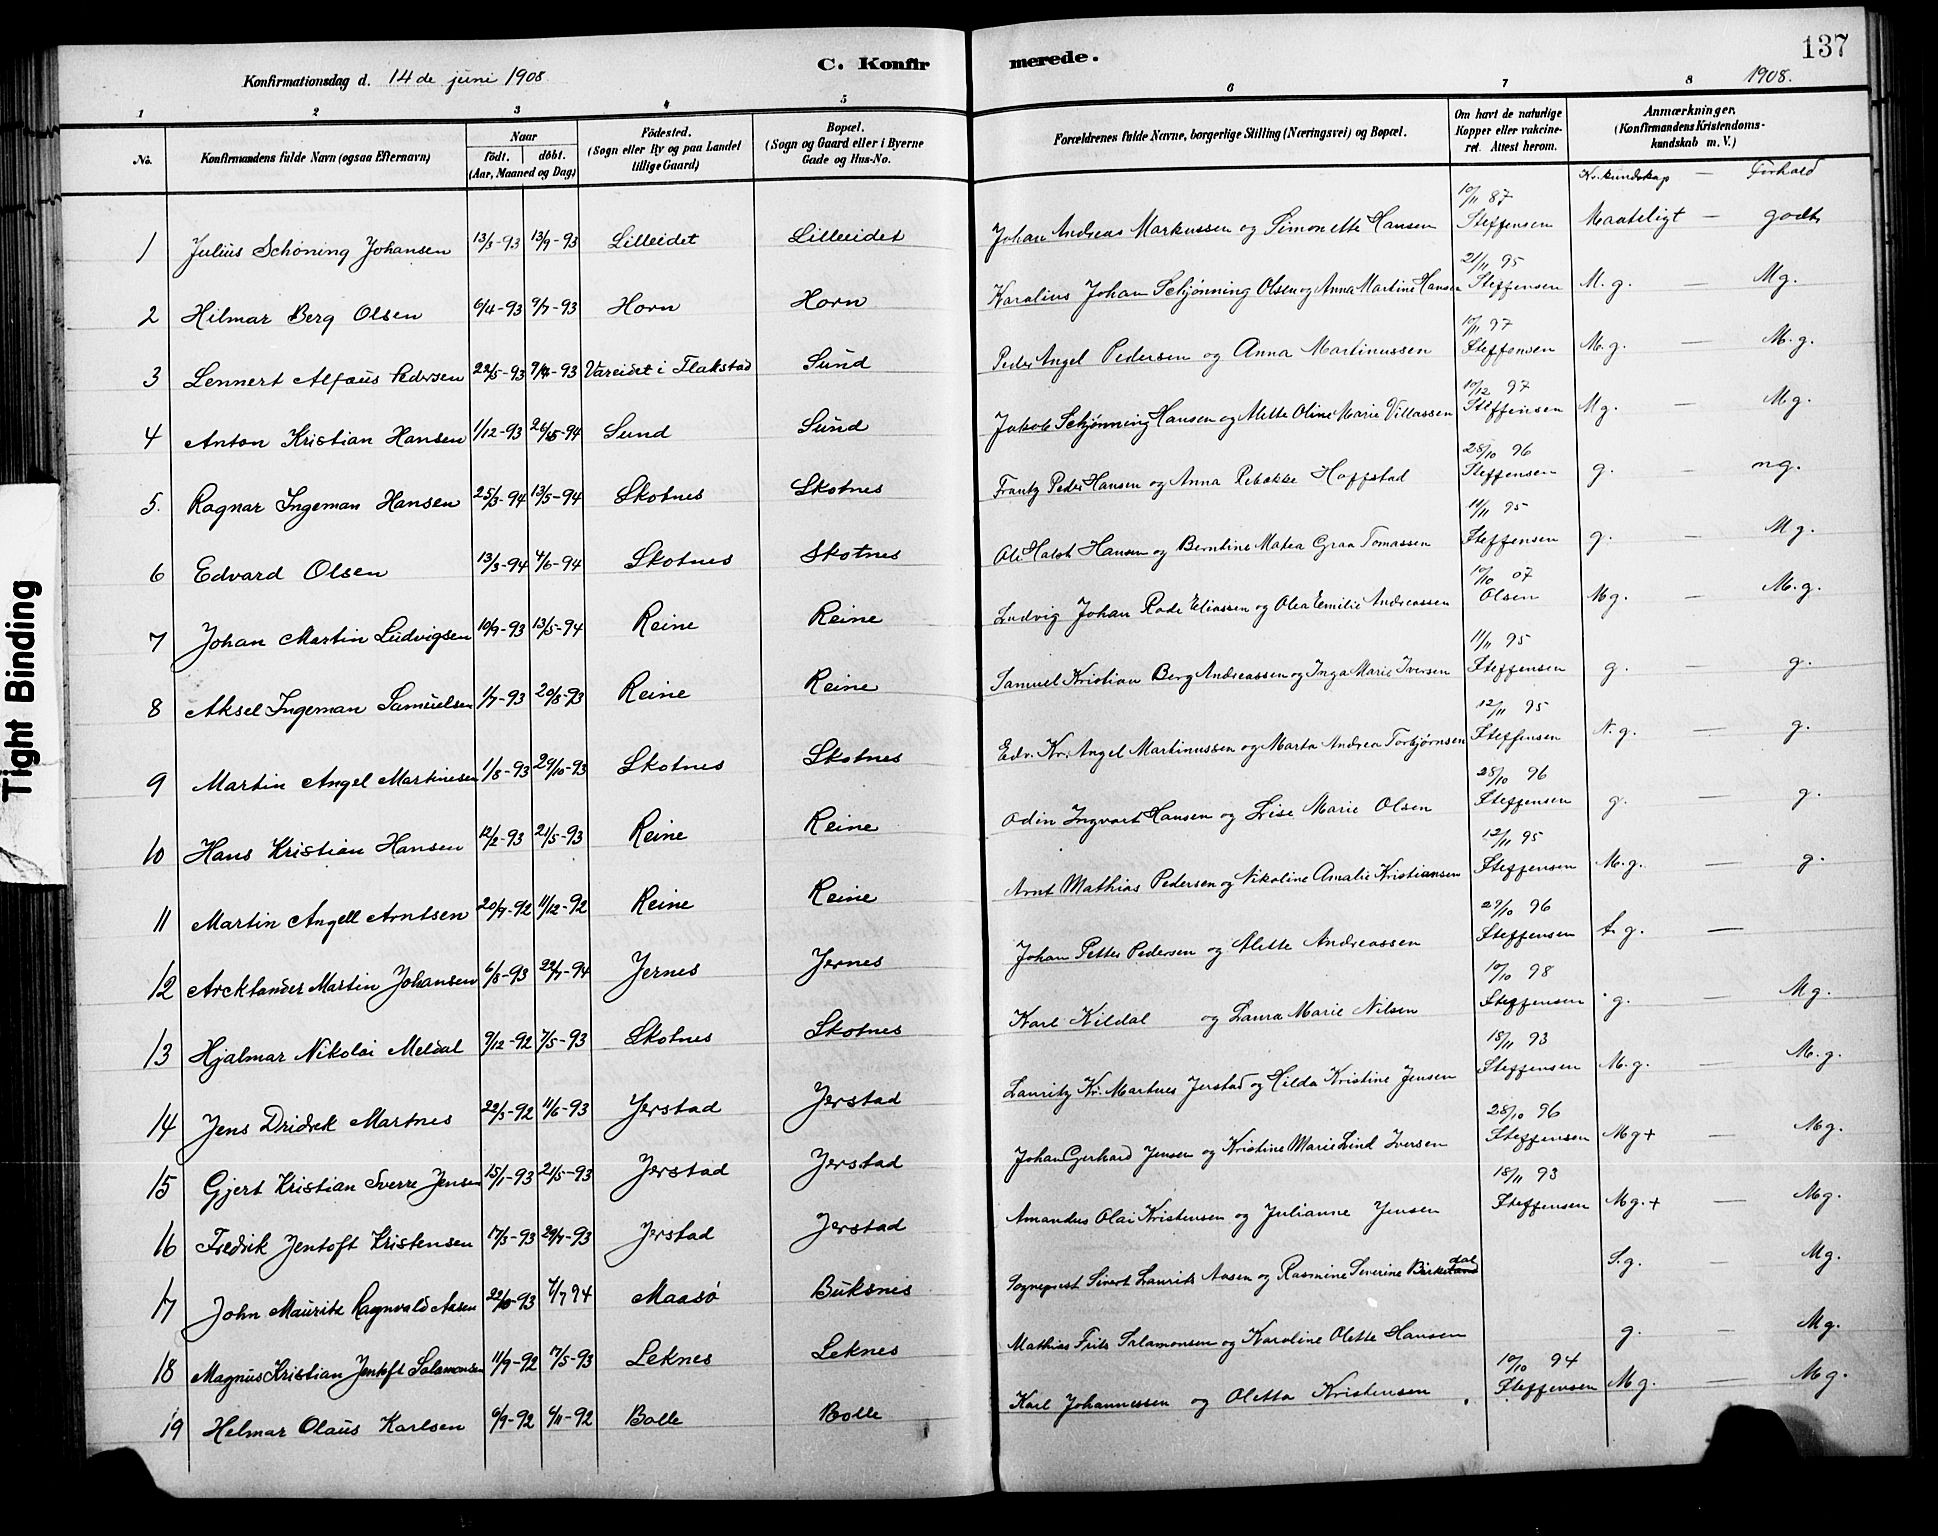 137
C. Konfirmerede.
Konfirmationsdag d. 14 de juni 1908
1908.
1 2 3 4 5 6 7 8
No.
Konfirmandens fulde Navn (ogsaa Efternavn)
Naar
födt. döbt.
(Aar, Maaned og Dag)
Födested.
(Sogn eller By og paa Landet
tillige Gaard)
Bopæl.
(Sogn og Gaard eller i Byerne
Gade og Hus-No.
Forældrenes fulde Navne, borgerlige Stilling (Næringsvei) og Bopæl.
Om havt de naturlige
Kopper eller vakcine-
ret. Attest herom.
Anmærkninger.
(Konfirmandens Kristendoms-
kundskab m. V.)
Kr.kundskap — Forhold
1 Julius Schöning Johansen 13/3-93 13/9-93 Lilleidet Lilleeidet Johan Andreas Markussen og Simonette Hansen 10/11 87 Steffensen Maateligt — godt
2 Hilmar Berg Olsen 6/4-93 9/7-93 Horn Horn Karolius Johan Schjønning Olsen og Anna Martine Hansen 21/11 95 Steffensen M.g. — Mg.
3 Lennert Alfæus Pedersen 22/5-93 Vareidet i Flakstad Sund Peder Angel Pedersen og Anna Martinussen 10/11 97 Steffensen M.g. — M.g.
4 Anton Kristian Hansen 1/12-93 Sund Sund Jakob Schjønning Hansen og Alette Oline Marie Villassen 10/12 97 Steffensen Mg. — M.g.
5. Ragnar Ingeman Hansen 25/3-94 13/5-94 Skotnes Skotnes Frantz Peder Hansen og Anna Rebekke Hoffstad 28/10 96 Steffensen g. — ng.
6 Edvard Olsen 13/3-94 4/6-94 Skotnes Skotnes Ole Holst Hansen og Berntine Matea Graa Tomassen 11/11 95 Steffensen g. — Mg.
7 Johan Martin Ludvigsen 10/9-93 13/5-94 Reine Reine Ludvig Johan Rode Eliassen og Olea Emilie Andreassen 10/10 07 Olsen Mg. — M.g.
8 Aksel Ingeman Samuelsen 1/7-93 20/8-93 Reine Reine Samuel Kristian Berg Andreassen og Inga Marie Iversen 11/11 95 Steffensen g. — g.
9 Martin Angel Martinesen 1/8-93 29/10-93 Skotnes Skotnes Edv. Kr. Angel Martinussen og Marta Andrea Torbjørnsen 12/11 95 Steffensen N.g. — g.
10 Hans Kristian Hansen 12/2-93 21/5-93 Reine Reine Odin Ingvart Hansen og Lise Marie Olsen 28/10 96 Steffensen g. — g.
11 Martin Angell Arntsen 20/7-92 11/12-92 Reine Reine Arnt Mathias Pedersen og Nikoline Amalie Kristiansen 12/11 95 Steffensen M.g. — g.
12 Arcktander Martin Johansen 6/8-93 Jernes Jernes Johan Petter Pedersen og Alette Andreassen 29/10 96 Steffensen g. —
13 Hjalmar Nikolai Meldal 9/12-92 7/5-93 Skotnes Skotnes Karl Kildal og Laura Marie Nilsen 10/10 98 Steffensen g. — Mg.
14 Jens Didrek Martnes 22/5-92 11/6-93 Jerstad Jerstad Lauritz Kr. Martnes Jerstad og Hilda Kristine Jensen 18/11 93 Steffensen M.g. — M.g.
15 Gjert Kristian Sverre Jensen 15/1-93 21/5-93 Jerstad Jerstad Johan Gerhard Jensen og Kristine Marie Lind Iversen 28/10 96 Steffensen Mg+ — Mg.
16 Fredrik Jentoft Kristensen 17/5-93 29/7-93 Jerstad Jerstad Amandus Olai Kristensen og Julianne Jensen 18/11 93 Steffensen Mg.+ — Mg.
17 John Mauritz Ragnvald Aasen 22/10-93 7/7 94 Maasø Buksnes Sogneprest Sivert Laurits Aasen og Rasmine Severine Birkedal S.g. — Mg.
18 Magnus Kristian Jentoft Salamonsen 11/9-92 17/5-93 Leknes Leknes Mathias Frits Salamonsen og Karoline Olette Hansen g. — Mg.
19 Helmar Olaus Karlsen 6/9-92 6/11-92 Bolle Bolle Karl Johannessen og Oletta Kristensen 10/10 94 Steffensen Mg. — Mg.
Tight Binding